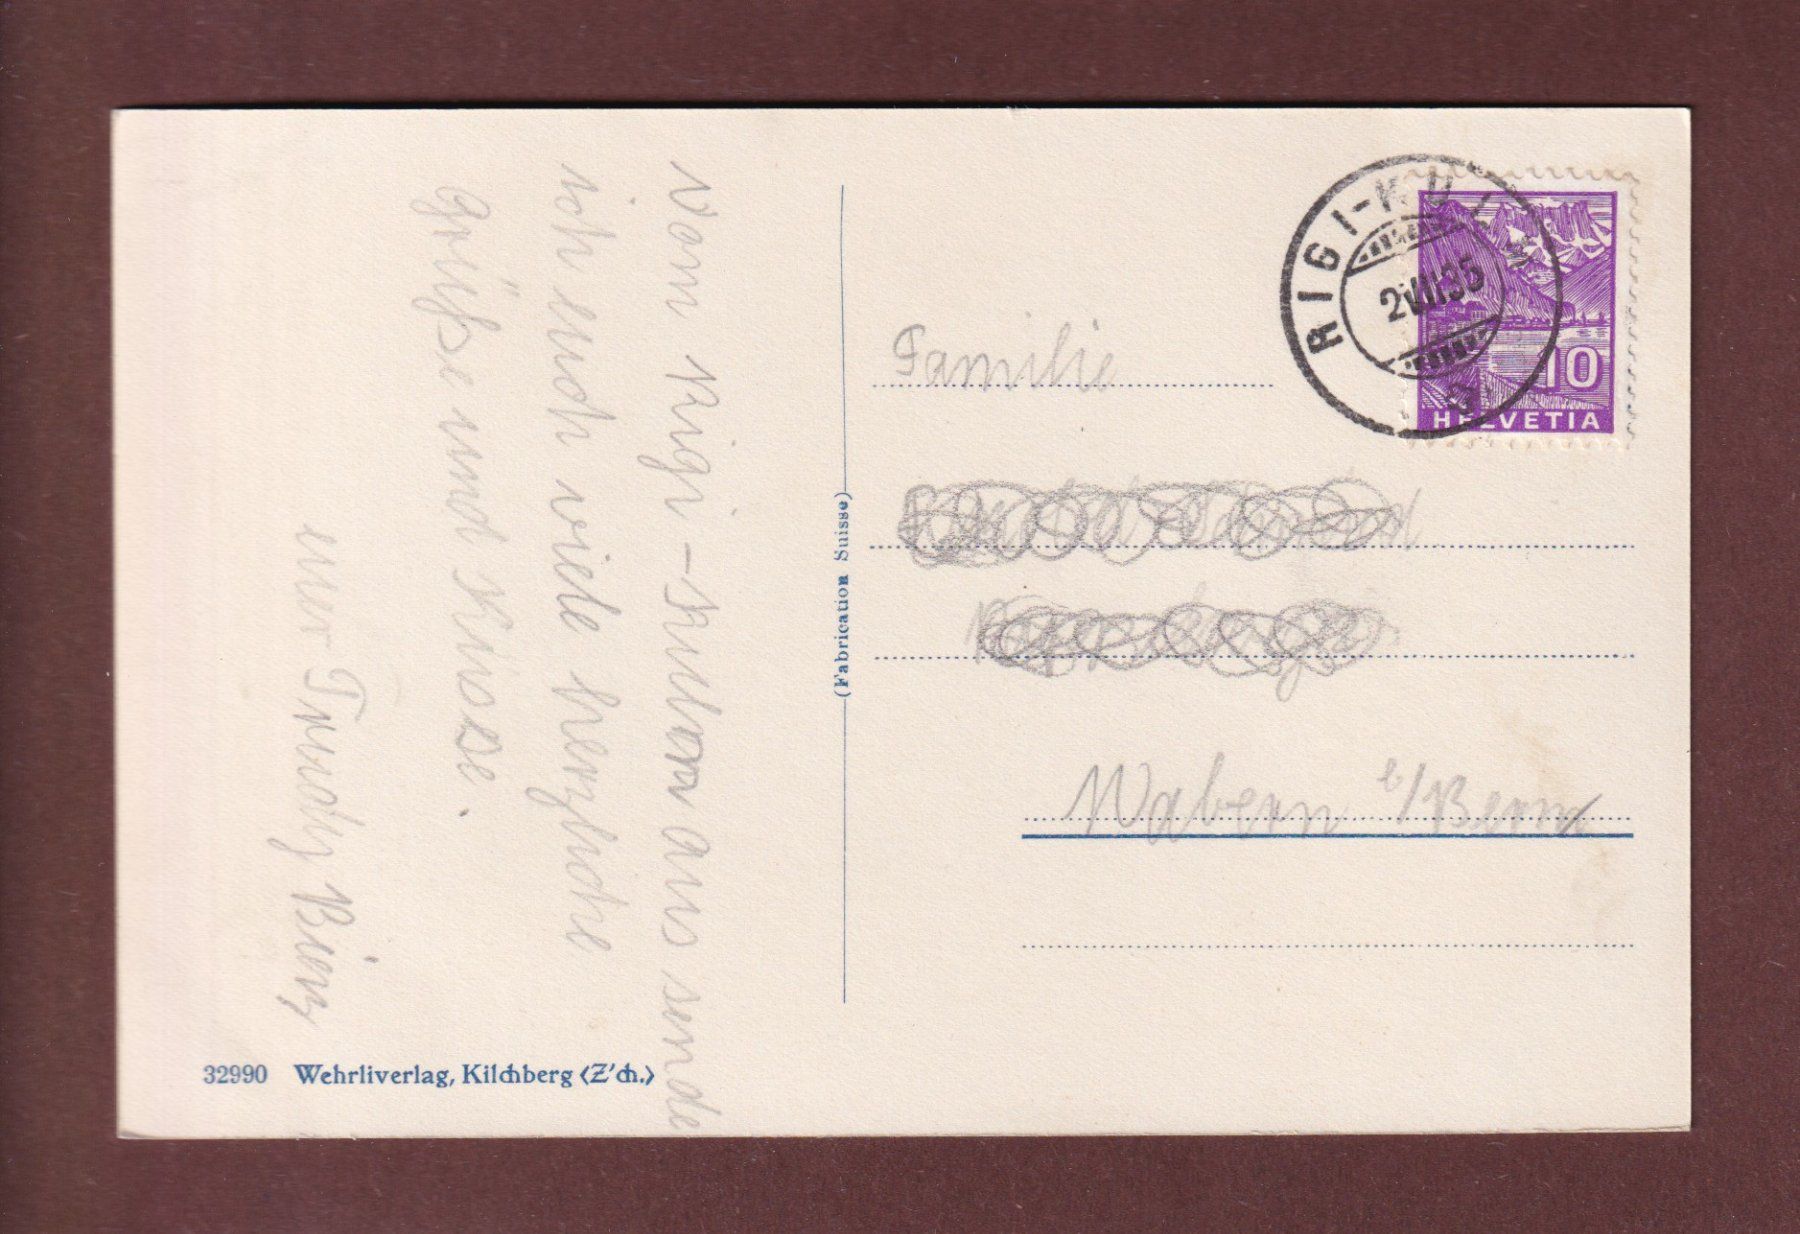 Vom Rigi-Kulm aus sende
ich euch viele herzliche
Grüße und Küsse.
euer Trudy Bienz
32990 Wehrliverlag, Kilchberg (Z'ch.)
(Fabrication Suisse)
RIGI-KULM
2.VII.35
10
HELVETIA
Familie
Wabern b/Bern